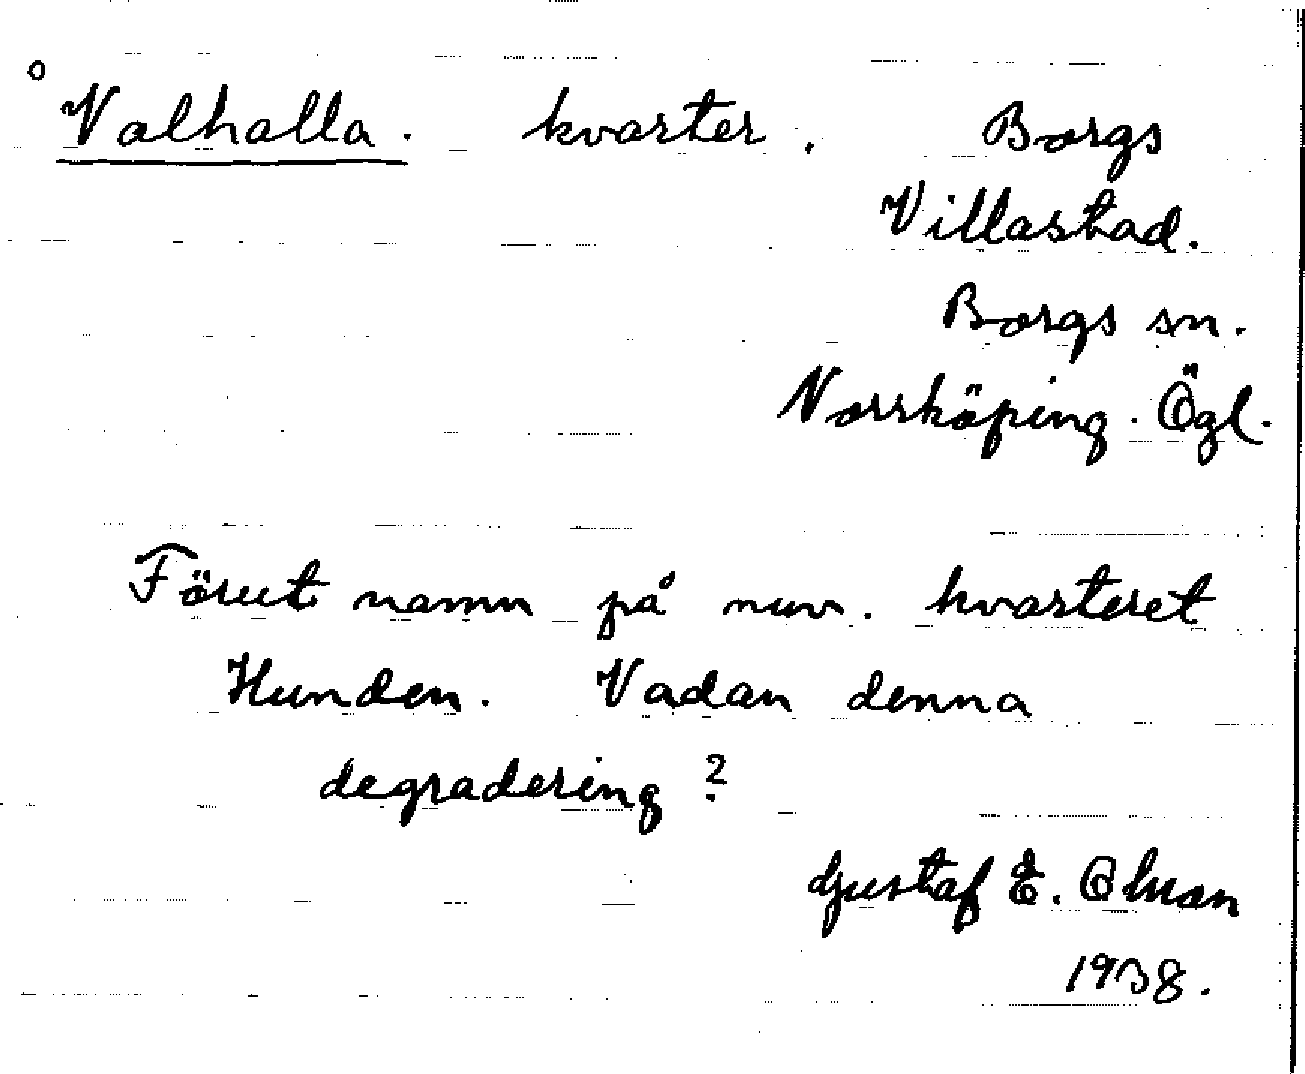 Valhalla. kvarter. Borgs
Villastad.
Borgs sn.
Norrköping. Ögl.
Förut namn på nuv. kvarteret
Hunden. Vadan denna
degradering?
Gustaf E. Olson
1938.